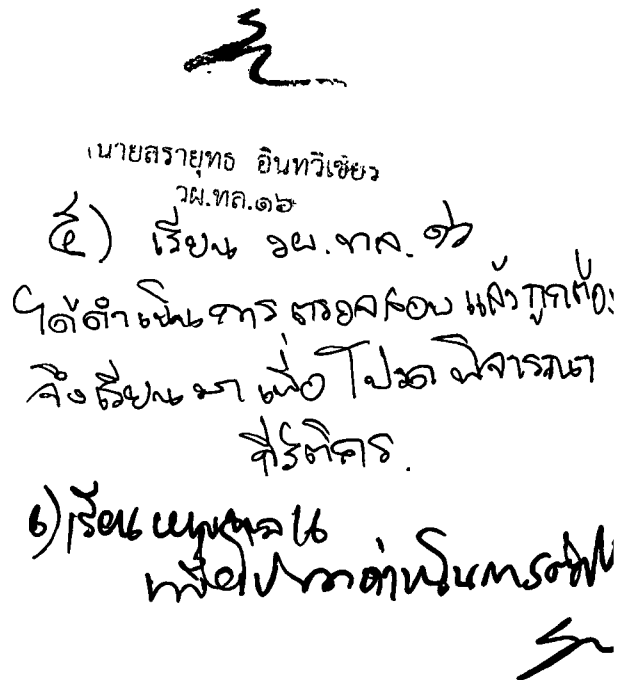 นายสรายุทธ อินทวิเชียว
วผ.ทล.๑๖
๕) เรียน วผ.ทล. ๑๖
ได้ดำเนินการ ตรวจสอบ แล้วถูกต้อง
จึงเรียนมา เพื่อ โปรด พิจารณา
กีรติกร.
๖) เรียน
เพื่อโปรดดำเนินการต่อไป